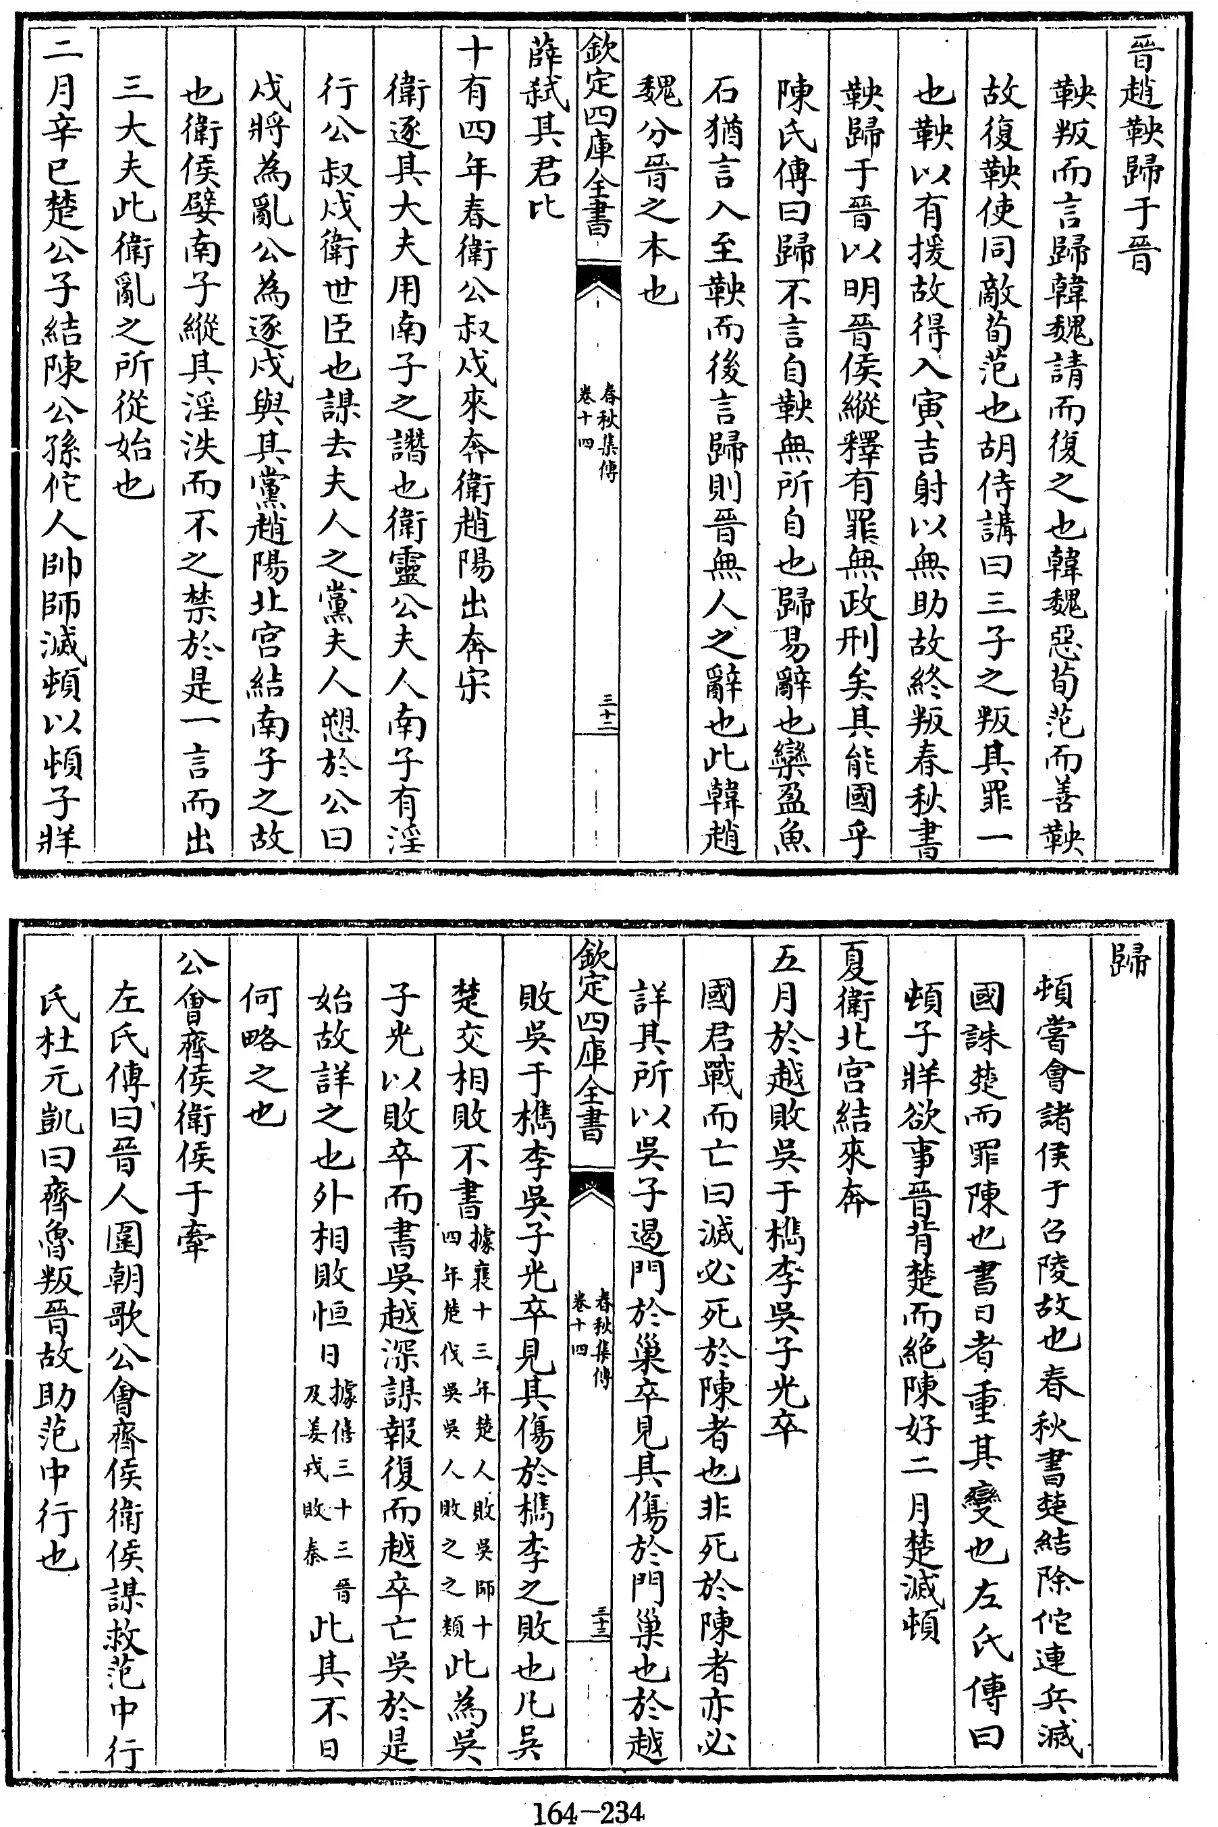 晉趙鞅歸于晉
鞅叛而言歸韓魏請而復之也韓魏惡荀范而善鞅
故復鞅使同敵荀范也胡侍講曰三子之叛其罪一
也鞅以有援故得入寅吉射以無助故終叛春秋書
鞅歸于晉以明晉侯縱釋有罪無政刑矣其能國乎
陳氏傳曰歸不言自鞅無所自也歸易辭也欒盈魚
石猶言入至鞅而後言歸則晉無人之辭也此韓趙
魏分晉之本也
欽定四庫全書
春秋集傳
卷十四
三十二
薛弒其君比
十有四年春衛公叔戍來奔衛趙陽出奔宋
衛逐其大夫用南子之譖也衛靈公夫人南子有淫
行公叔戍衛世臣也謀去夫人之黨夫人愬於公曰
戍將為亂公為逐戍與其黨趙陽北宮結南子之故
也衛侯嬖南子縱其淫泆而不之禁於是一言而出
三大夫此衛亂之所從始也
二月辛巳楚公子結陳公孫佗人帥師滅頓以頓子牂
歸
頓嘗會諸侯于召陵故也春秋書楚結陳佗連兵滅
國誅楚而罪陳也書日者重其變也左氏傳曰
頓子牂欲事晉背楚而絶陳好二月楚滅頓
夏衛北宮結來奔
五月於越敗吳于檇李吳子光卒
國君戰而亡曰滅必死於陳者也非死於陳者亦必
詳其所以吳子遏門於巢卒見其傷於門巢也於越
欽定四庫全書
春秋集傳
卷十四
三十三
敗吳于檇李吳子光卒見其傷於檇李之敗也凡吳
楚交相敗不書據襄十三年楚人敗吳師十四年楚伐吳吳人敗之之類此為吳
子光以敗卒而書吳越深謀報復而越卒亡吳於是
始故詳之也外相敗恒日據僖三十三晉及姜戎敗秦此其不日
何略之也
公會齊侯衛侯于牽
左氏傳曰晉人圍朝歌公會齊侯衛侯謀救范中行
氏杜元凱曰齊魯叛晉故助范中行也
164-234